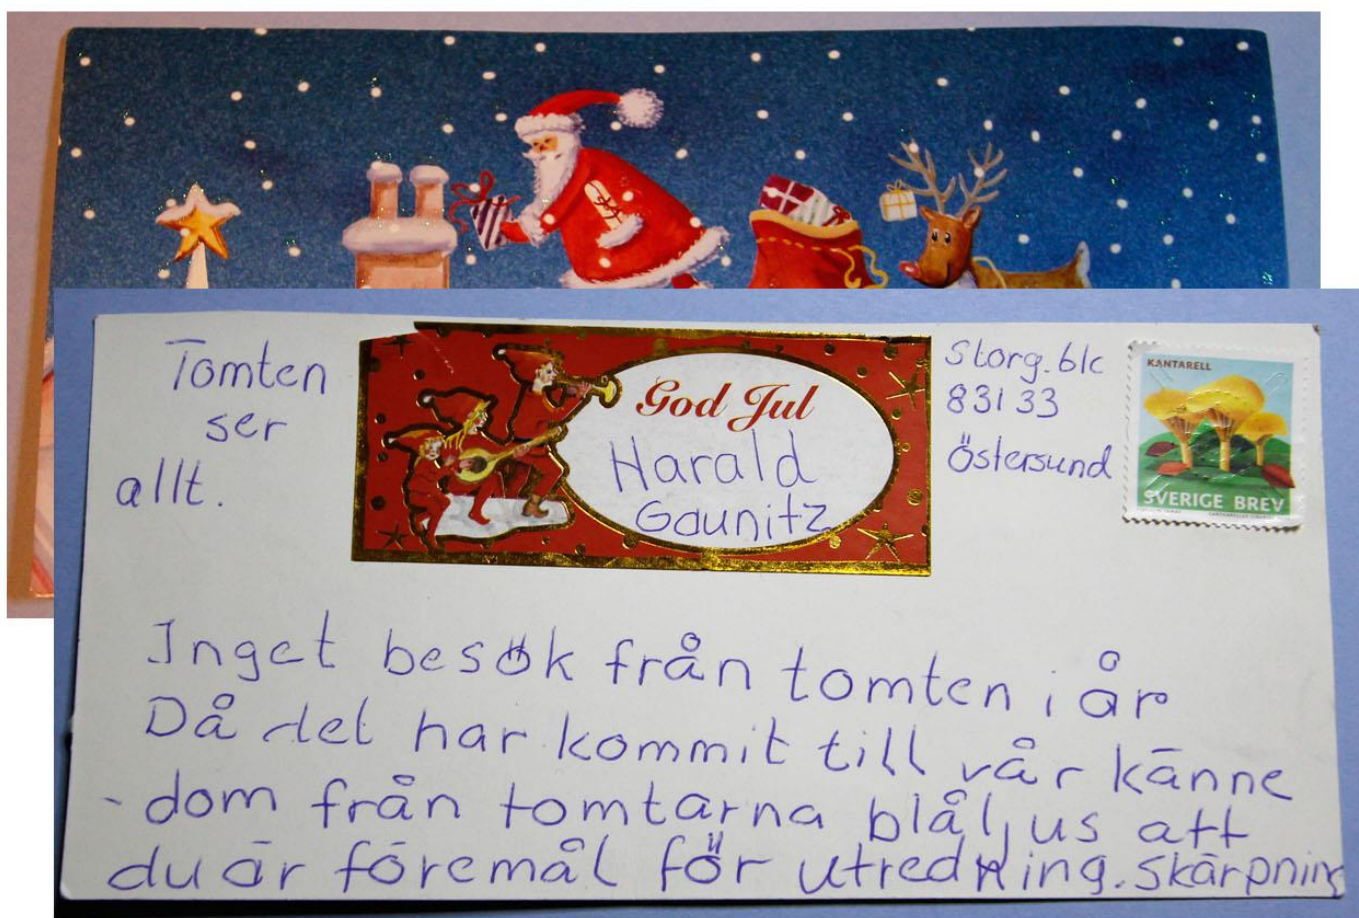 Tomten
ser
allt.
God Jul
Harald
Gaunitz
Storg. 61c
831 33
Östersund
KANTARELL
SVERIGE BREV
Inget besök från tomten i år
Då det har kommit till vår känne
-dom från tomtarna blåljus att
du är föremål för utredning. skärpning